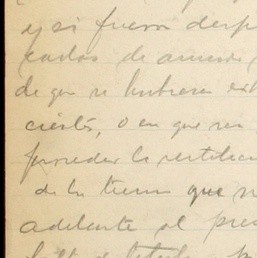 y si fuera desp
cadas de acuerdo
de que se hubiera est
cierto, o en que sea
proceder la rectificac
de las tierras que se
adelante al pre